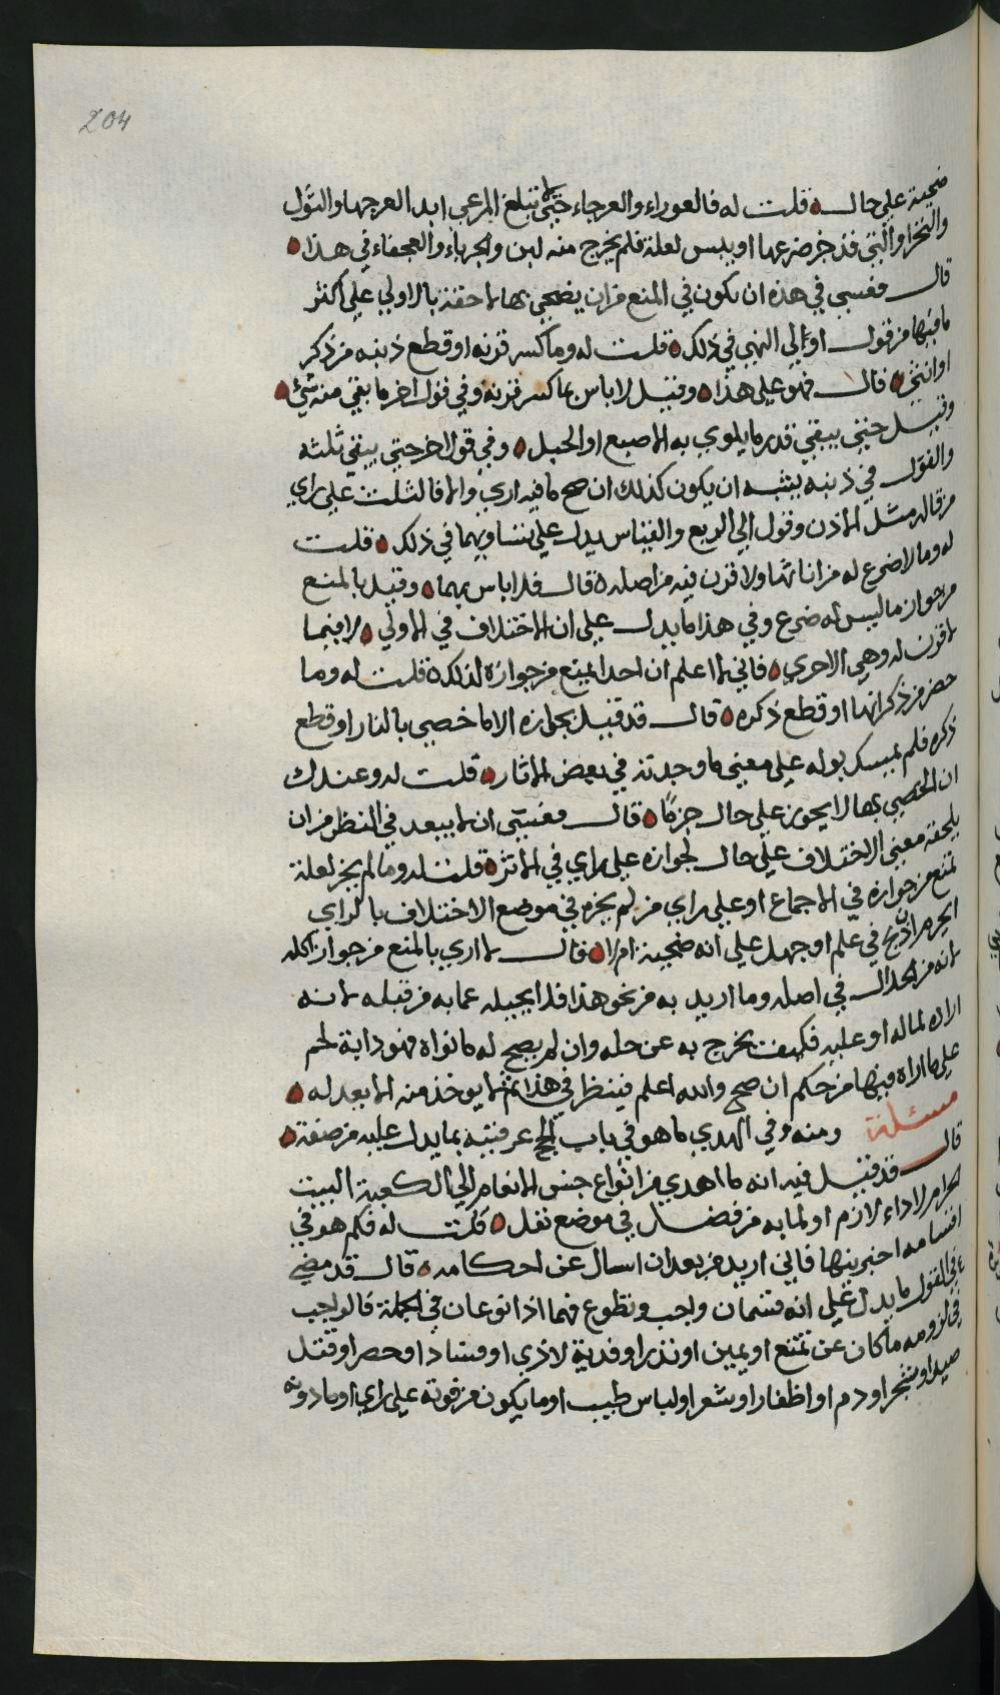 204
ضحية على حال قلت له فالعوراء والعرجاء حتى لا تبلغ المرعى ابدا لعرجها والتول
والبخرا والتي قد خر ضرعها او يبس لعلة فلم يخرج منه لبن والجرباء والعجفاء في هذا
قال فعسى في هذه ان يكون في المنع من ان يضحي بها لاحقة بالاولى على اكثر
ما فيها من قول او الى النهي في ذلك قلت له وما كسر قرنه او قطع ذنبه من ذكر
او انثى قال فهو على هذا وقيل لا باس بما كسر قرنه وفي قول اخر ما بقي منه شيء
وقيل حتى يبقى قدر ما يلوي به الاصبع او الحبل وفي قول اخر حتى يبقى ثلثه
والقول في ذنبه يشبه ان يكون كذلك ان صح ما فيه ارى والا فالثلث على راي
من قاله مثل الاذن وقول الى الربع والقياس يدل على تساويهما في ذلك قلت
له وما لا ضرع له من اناثها ولا قرن فيه من اصله قال فلا باس بهما وقيل بالمنع
من جواز ما ليس له ضرع وفي هذا ما يدل على ان الاختلاف في الاولى لا فيما
لا قرن له وهي الاخرى فاني لا اعلم ان احدا يمنع من جوازه لذلك قلت له وما
خصي من ذكرانها او قطع ذكره قال قد قيل بجوازه الا ما خصي بالنار او قطع
ذكره فلم يمسك بوله على معنى ما وجدته في بعض الاثار قلت له وعندك
ان الخصي بها لا يجوز على حال جزما قال فعسى ان لا يبعد في النظر من ان
يلحقه معنى الاختلاف على حال لجوازه على راي في الاثر قلت له وما لم يجز لعلة
تمنع من جوازه في الاجماع او على راي من لم يجزه في موضع الاختلاف بالراي
ايحرم ان ذبح في علم او جهل على انه ضحية ام لا قال لا ارى بالمنع من جواز اكله
لانه من الحلال في اصله وما اريد به من نحو هذا فلا يحيله عما به من قبله لانه
اراده لما له او عليه فكيف يخرج به عن حله وان لم يصح له ما نواه فهو دابة لحم
على ما اراه فيها من حكم ان صح والله اعلم فينظر في هذا ثم لا يوخذ منه الا بعدله
مسئلة ومنه وفي الهدي ما هو في باب الحج عرفنيه بما يدل عليه من صفة
قال قد قيل فيه انه ما اهدي من انواع جنس الانعام الى الكعبة البيت
الحرام لاداء لازم او لما به من فضل في موضع نفل قلت له فكم هو في
اقسامه اخبرنيها فاني اريد من بعد ان اسال عن احكامه قال قد مضى
في القول ما يدل على انه قسمان واجب وتطوع فهما اذا نوعان في الجملة فالواجب
في لزومه ما كان عن تمتع او يمين او نذر او فدية لاذى او فساد او حصر او قتل
صيد او شجر او دم او اظفار او شعر او لباس طيب او ما يكون من فوته على راي او ما دونه